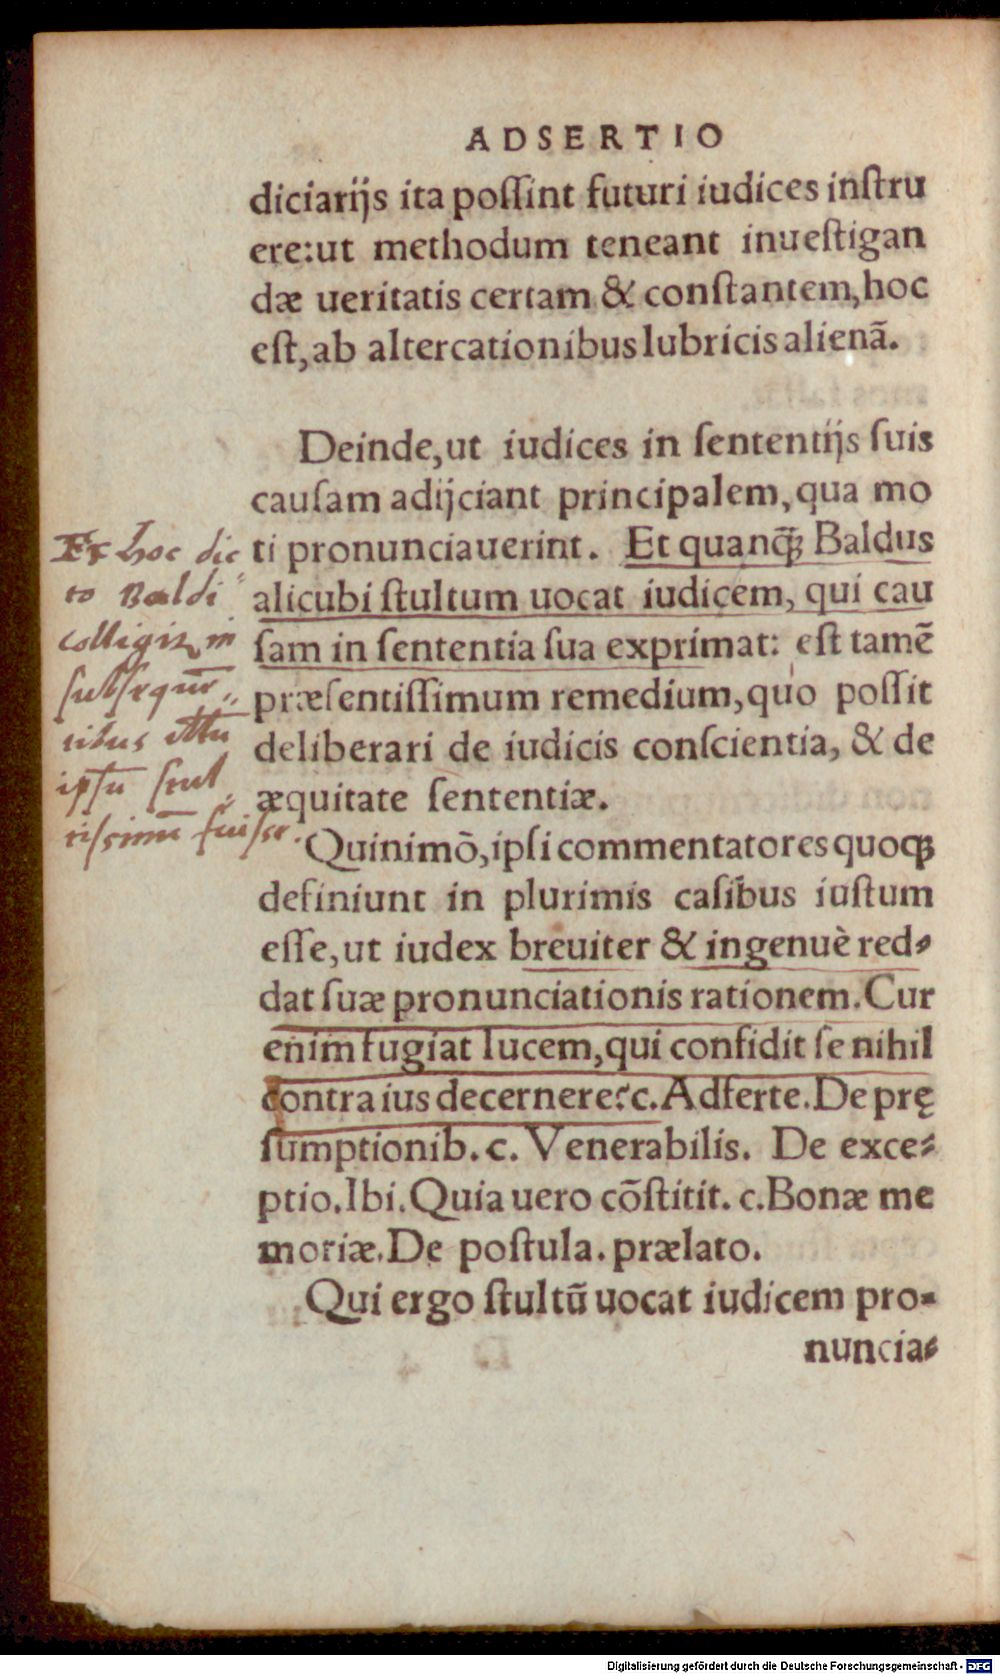 ADSERTIO
diciarijs ita poſſint futuri iudices inſtru
ere:ut methodum teneant inueſtigan
dæ ueritatis certam & conſtantem,hoc
eſt,ab altercationibus lubricis alienã.
Deinde,ut iudices in ſententijs ſuis
cauſam adijciant principalem,qua mo
ti pronunciauerint. Et quanqꝫ Baldus
alicubi ſtultum uocat iudicem, qui cau
ſam in ſententia ſua exprimat: eſt tamẽ
præſentiſſimum remedium,quo poſſit
deliberari de iudicis conſcientia, & de
æquitate ſententiæ.
Ex hoc dic
to Baldi
colligit̃ in
ſubſequẽ
tibus illũ
ipſũ ſtul
tiſsimũ fuiſse.
Quinimõ,ipſi commentatores quoqꝫ
definiunt in plurimis caſibus iuſtum
eſſe,ut iudex breuiter & ingenuè red-
dat ſuæ pronunciationis rationem.Cur
enim fugiat lucem,qui confidit ſe nihil
contra ius decernere?c.Adferte.De prę
ſumptionib.c. Venerabilis. De exce-
ptio.Ibi.Quia uero cõſtitit. c.Bonæ me
moriæ.De poſtula.prælato.
Qui ergo ſtultũ uocat iudicem pro-
nuncia-
Digitalisierung gefördert durch die Deutsche Forschungsgemeinschaft - DFG